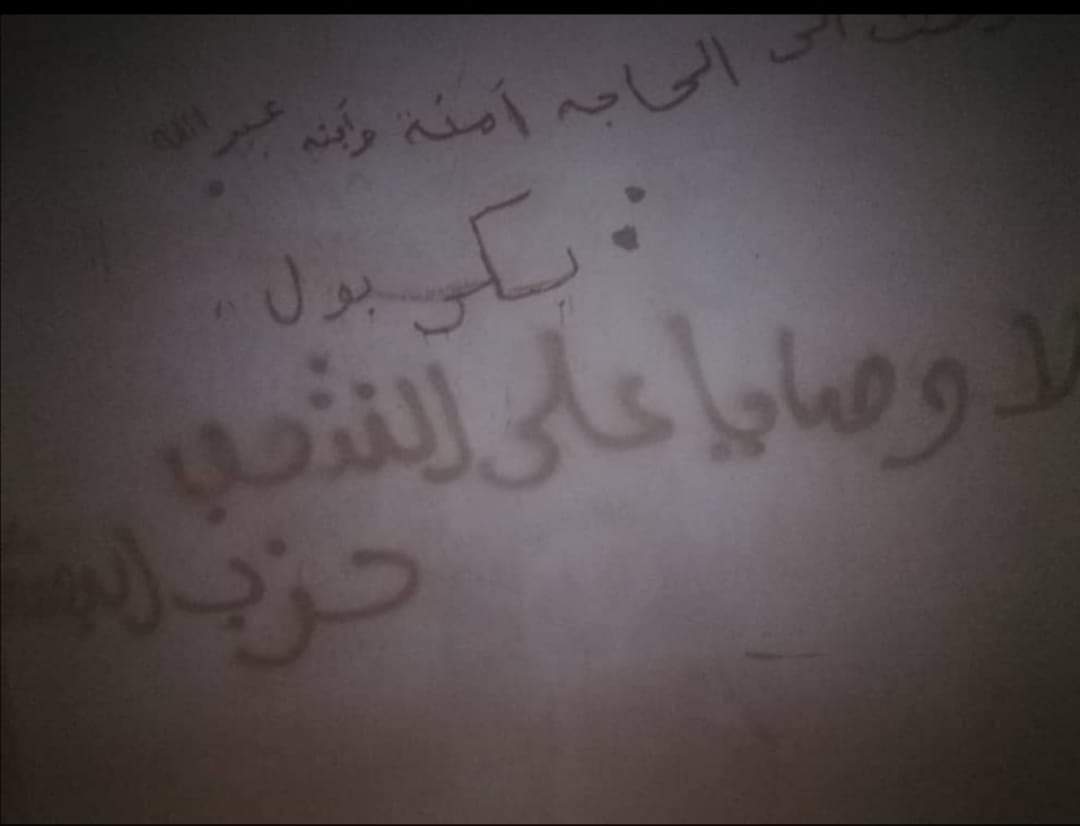 الى الحاجه آمنة وأبنه عبد الله
: يكى بول
لا وصايا على
حزب